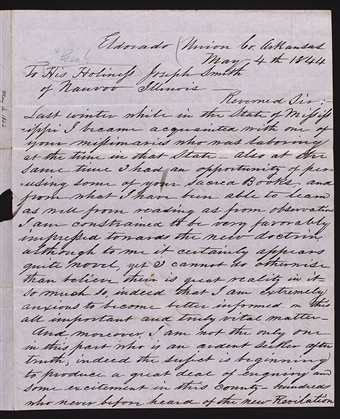 Eldorado (Union Co. Arkansas
May 4th 1844
To His Holiness Joseph Smith
of Nauvoo Illinois
Revered Sir:
Last winter while in the State of Missis
ippi I became acquainted with one of
your missionaries who was laboring
at the time in that State also at the
same time I had an opportunity of per
using some of your Sacred Books, and
from what I have been able to learn
as well from reading as from observation
I am constrained to be very favorably
impressed towards the new doctrin,
although to me it certainly appears
quite novel, yet I cannot do otherwise
than believe their is great reality in it
so much so, indeed that I am extremely
anxious to become better informed in this
all important and truly vital matter
And moreover I am not the only one
in this part who is an ardent seeker after
truth, indeed the subject is beginning
to produce a great deal of enquiry and
some excitement in this County hundreds
who never before heard of the new Revilation